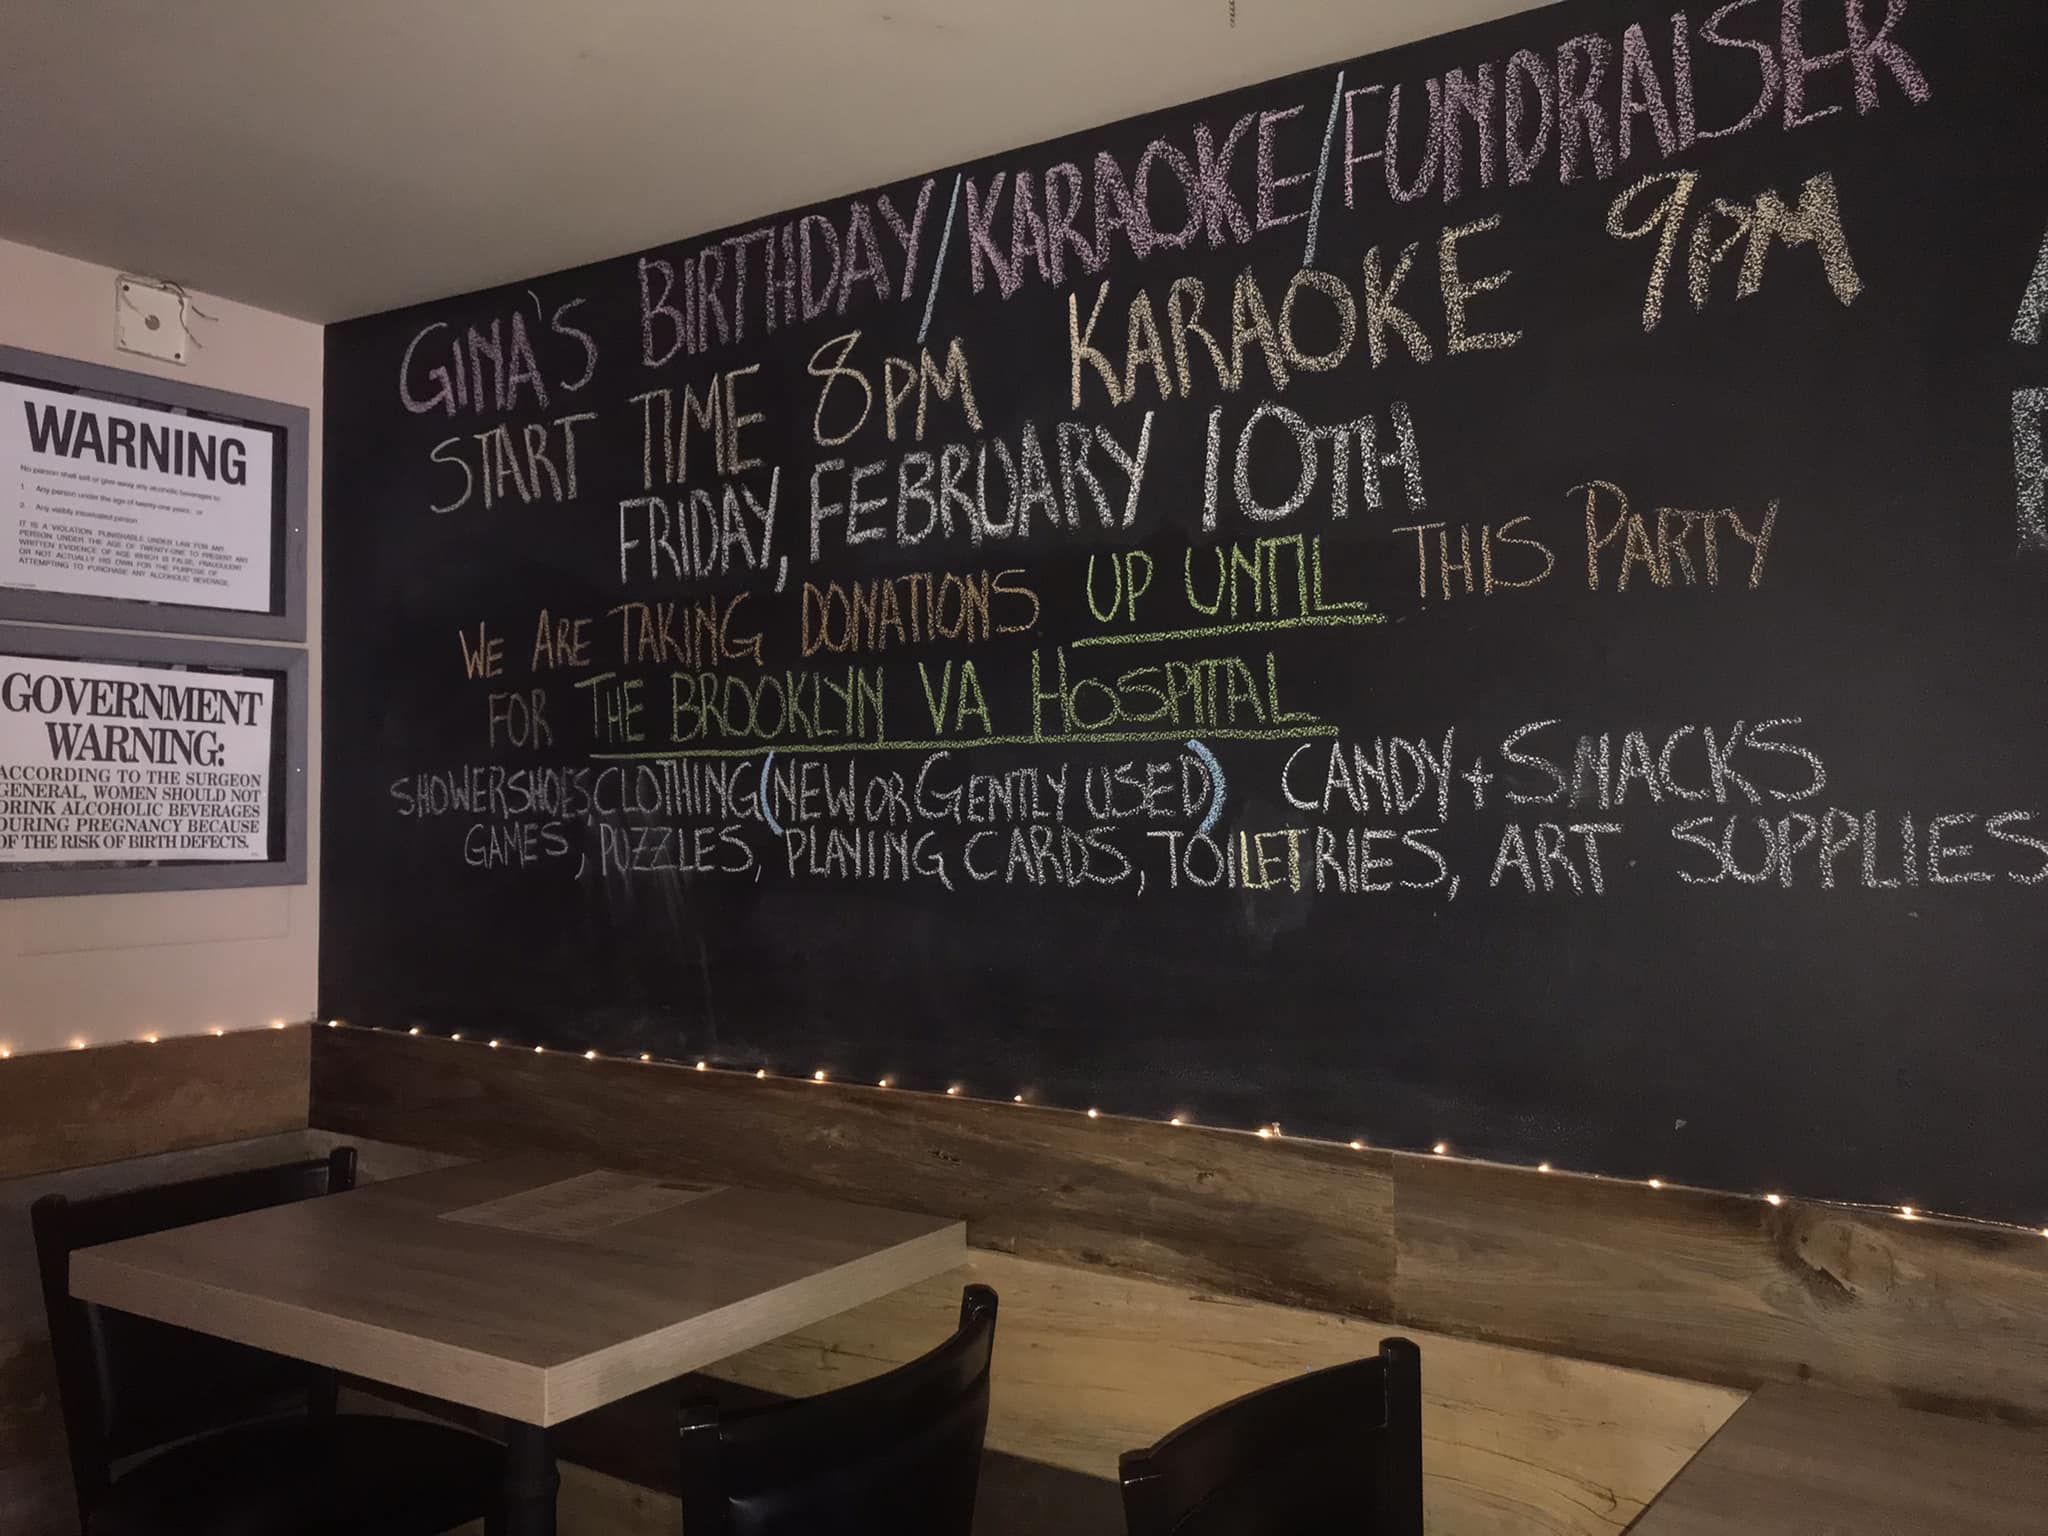 GINA'S BIRTHDAY/KARAOKE/FUNDRAISER
START TIME 8PM KARAOKE 9PM
FRIDAY, FEBRUARY 10TH
WE ARE TAKING DONATIONS UP UNTIL THIS PARTY
FOR THE BROOKLYN VA HOSPITAL
SHOWERSHOES, CLOTHING (NEW OR GENTLY USED) CANDY + SNACKS
GAMES, PUZZLES, PLAYING CARDS, TOILETRIES, ART SUPPLIES
WARNING
No person shall sell or give away any alcoholic beverages to:
1. Any person under the age of twenty-one years; or
2. Any visibly intoxicated person
IT IS A VIOLATION PUNISHABLE UNDER LAW FOR ANY
PERSON UNDER THE AGE OF TWENTY-ONE TO PRESENT ANY
WRITTEN EVIDENCE OF AGE WHICH IS FALSE, FRAUDULENT
OR NOT ACTUALLY HIS OWN FOR THE PURPOSE OF
ATTEMPTING TO PURCHASE ANY ALCOHOLIC BEVERAGE.
GOVERNMENT
WARNING:
ACCORDING TO THE SURGEON
GENERAL, WOMEN SHOULD NOT
DRINK ALCOHOLIC BEVERAGES
DURING PREGNANCY BECAUSE
OF THE RISK OF BIRTH DEFECTS.